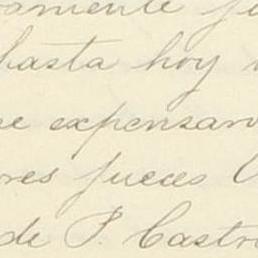 amente
hasta hoy
expensar
res jueces
de P. Castr